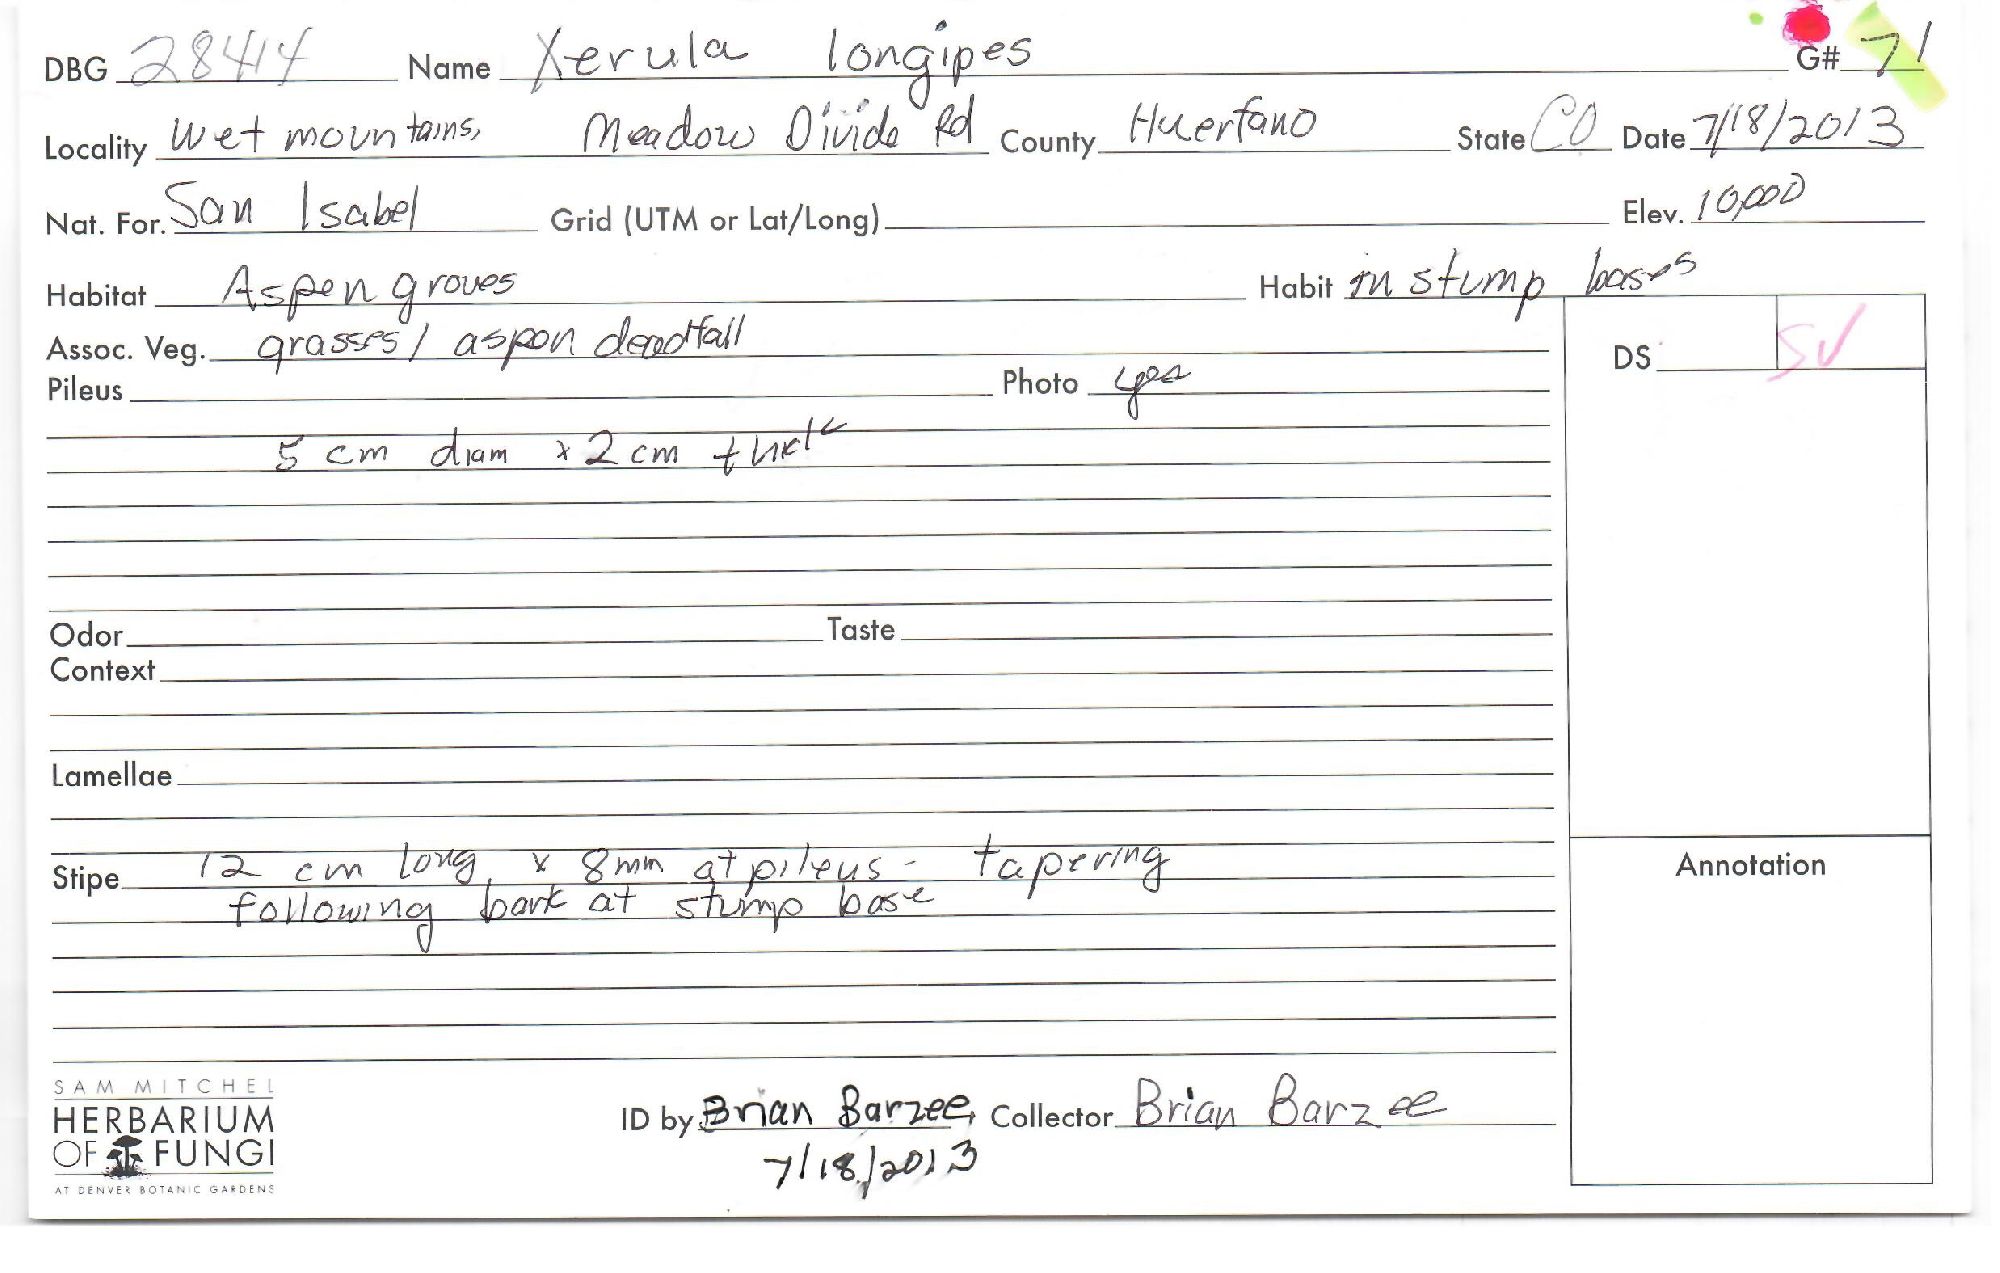 DBG 28414 Name Xerula longipes G# 71
Locality Wet mountains, Meadow Divide Rd County Huerfano State CO Date 7/18/2013
Nat. For. San Isabel Grid (UTM or Lat/Long) Elev. 10,000
Habitat Aspen groves Habit in stump bases
Assoc. Veg. grasses / aspen deadfall DS SV
Pileus Photo yes
5 cm diam x 2 cm thick
Odor Taste
Context
Lamellae
Stipe 12 cm long x 8mm at pileus - tapering
following bark at stump base
Annotation
SAM MITCHEL
HERBARIUM
OF FUNGI
AT DENVER BOTANIC GARDENS
ID by Brian Barzee, Collector Brian Barzee
7/18/2013